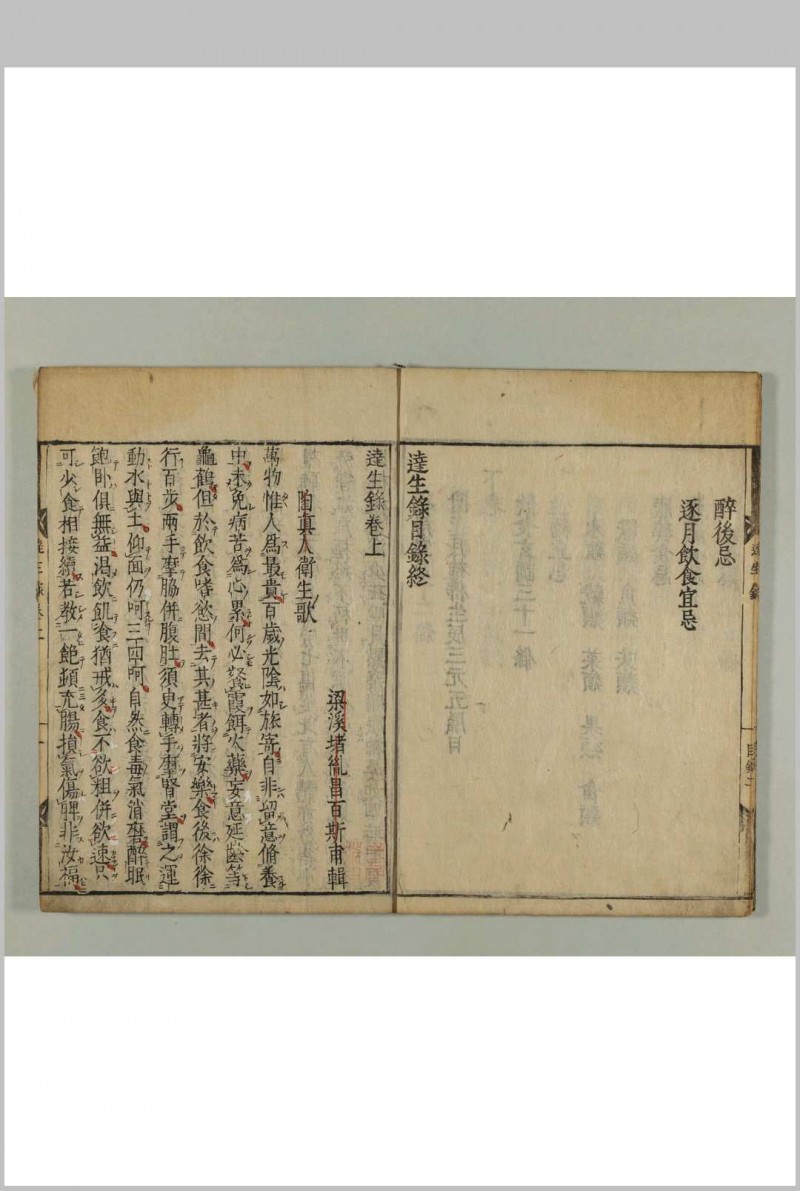 醉後忌
逐月飲食宜忌
達生錄目錄終
達生錄
目錄二
達生錄卷上
梁溪堵胤昌百斯甫輯
陶真人衛生歌
萬物惟人爲最貴百歲光陰如旅寄自非留意脩養
中未免病苦爲心累何必餐霞餌火藥妄意延齡等
龜鶴但於飲食嗜慾間去其甚者將安樂食後徐徐
行百步兩手摩脇併腹肚須臾轉手摩腎堂謂之運
動水與土仰面仍呵三四呵自然食毒氣消磨醉眠
飽臥俱無益渴飲飢食猶戒多食不欲粗併欲速只
可少食相接續若敎一飽頓充腸損氣傷脾非汝福